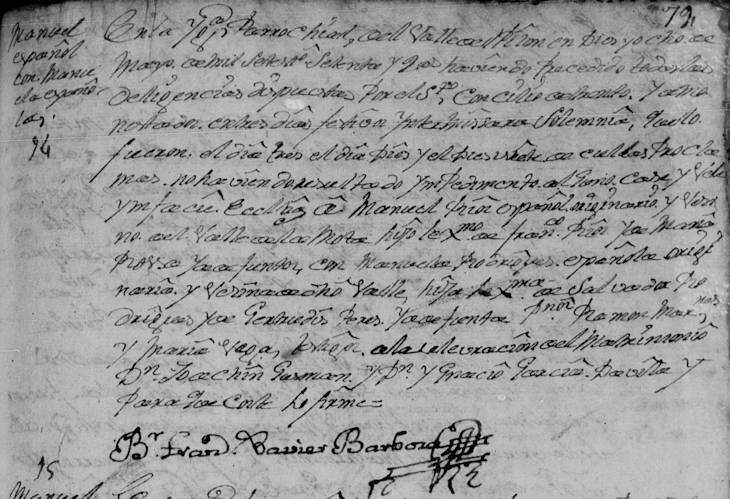 79,
Manuel
español
con Manu
ela españo
las,
94
En la Yg.ª Parrochial, del Valle de en Dies y ocho de
Mayo de mil Setes.tos Setenta y dos haviendo precedido todas las
deligencias dispuestas por el S.to Concilio de Trento. Y amo
nestados en tres dias festivos Yntermissarum Solemnia, q.e lo
fueron el dia tres el dia dies y el dies y siete de cullas Procla
mas no haviendo resultado Ympedimento alguno Case y Velé
Ymfacie Ecclesiæ a Manuel español originario y Vezi
no del Valle de la Mota hijo lexmo. de Fran.co y de Maria
ya defuntos, con Manuela Rodrigues española origi
naria y Vezina de dho Valle, hija lexma. de Salvador Ro
drigues y de Gertrudis Peres ya defunta p.nos Ramos
y Maria Vega, testigos a la celevracion del Matrimonio
D.n Joachin Gusman y D.n Ygnacio Garcia Davila y
para q.e Conste lo firme=
B.r Fran.co Xavier Barbosa
95
Manuel